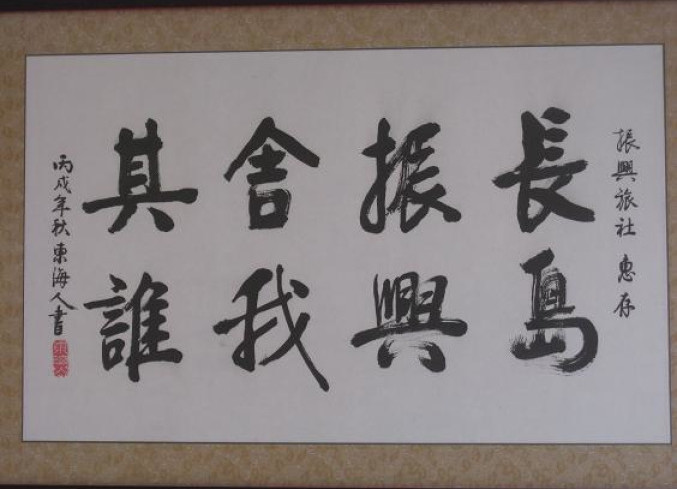 振興旅社 惠存
長島
振興
舍我
其誰
丙戌年秋東海人書